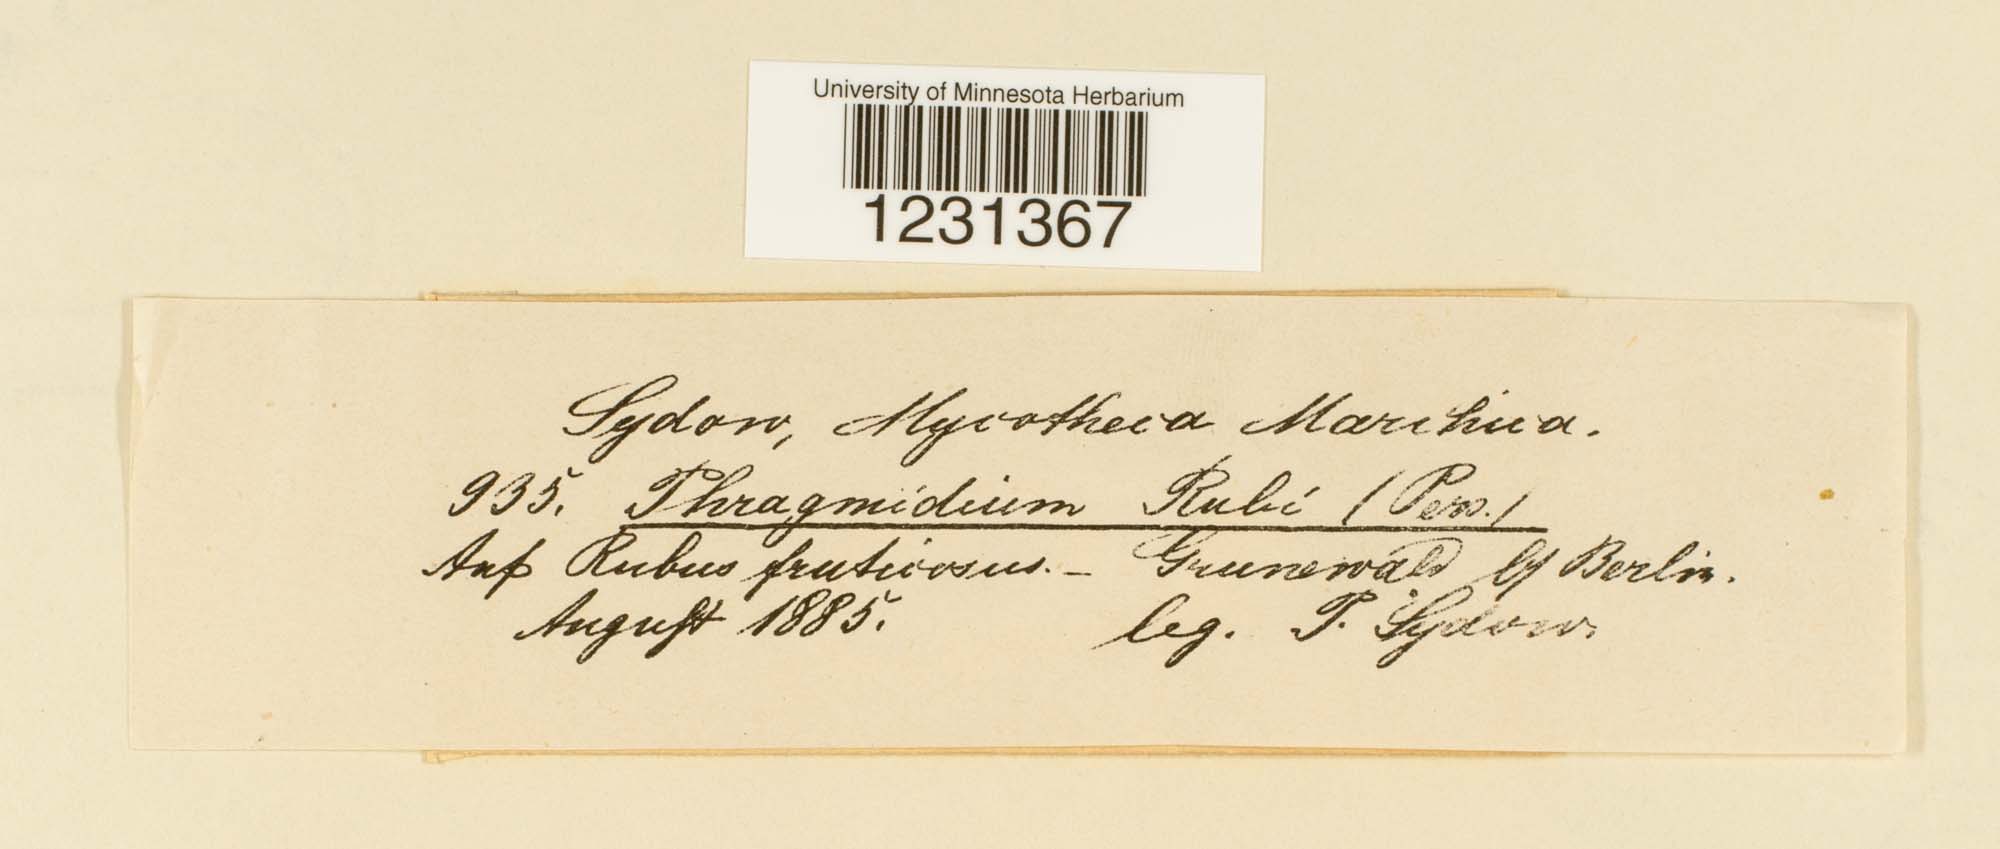 University of Minnesota Herbarium
1231367
Sydow, Mycotheca Marchica.
935. Phragmidium Rubi (Pers.)
Auf Rubus fruticosus. - Grunewald bf Berlin.
August 1885. leg. P. Sydow.